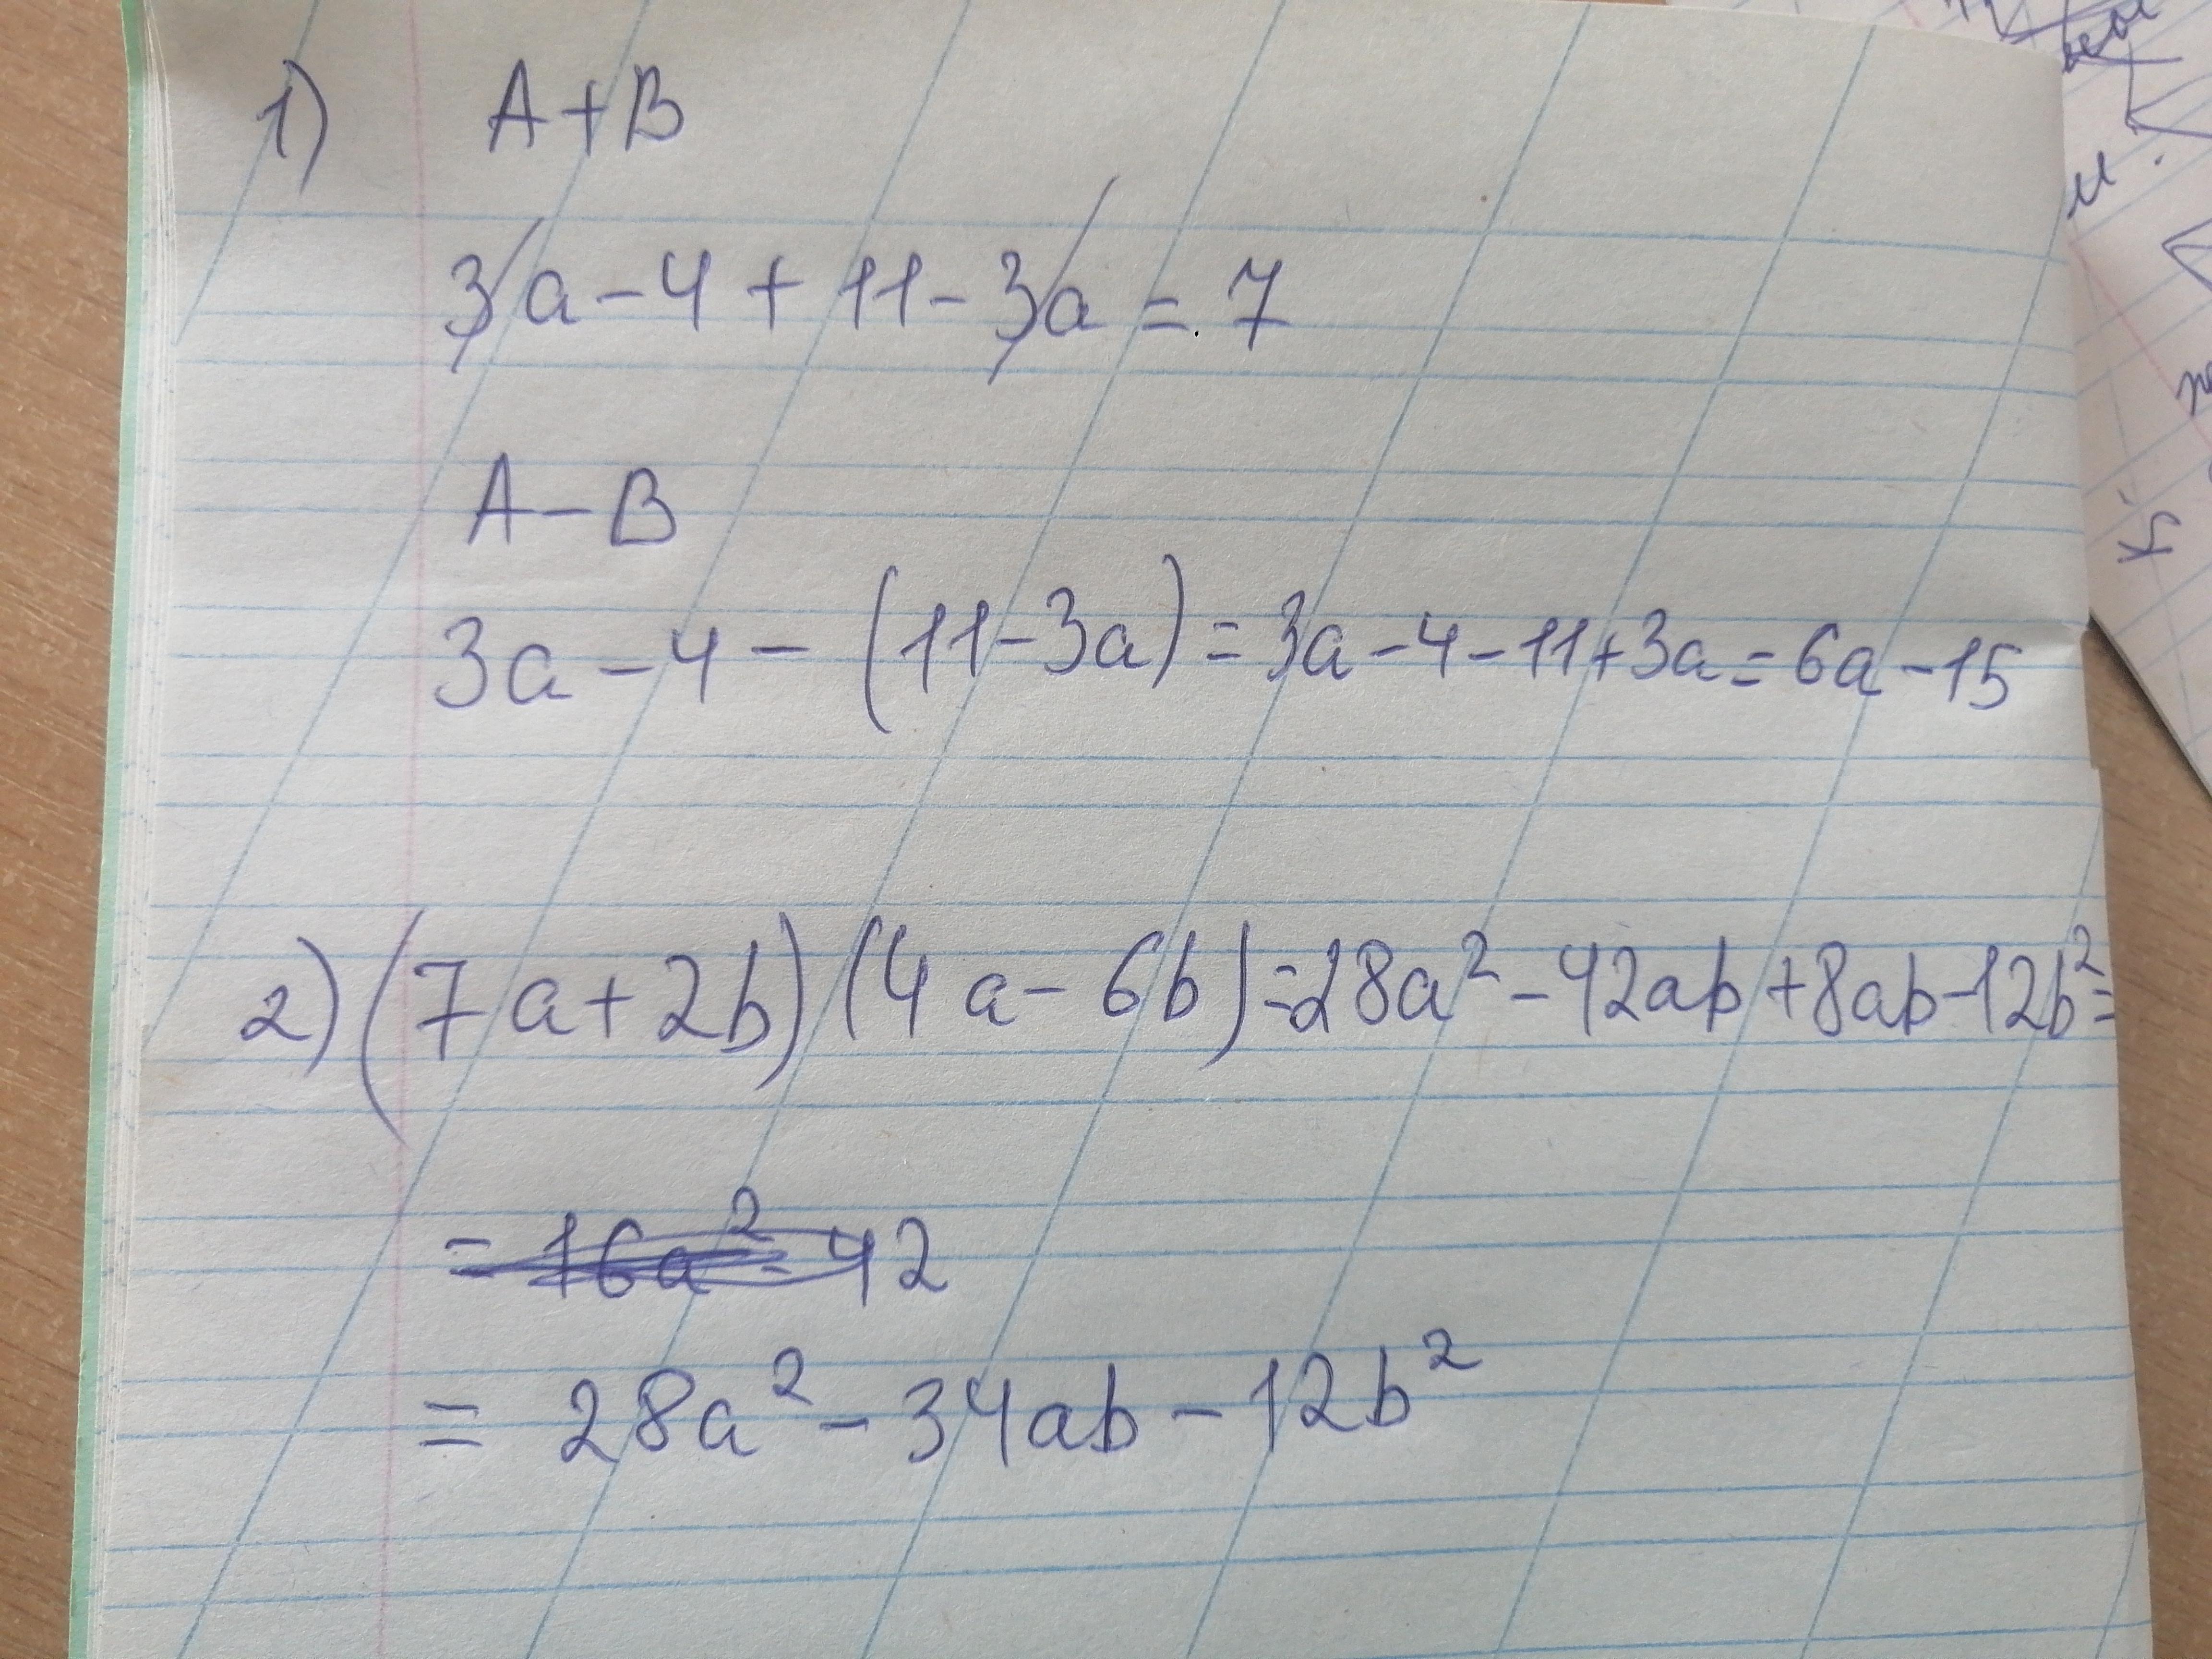 1) A+B
3a-4+11-3a=7
A-B
3a-4-(11-3a)=3a-4-11+3a=6a-15
2)(7a+2b)(4a-6b)=28a²-42ab+8ab-12b²=
=16a²-42
=28a²-34ab-12b²